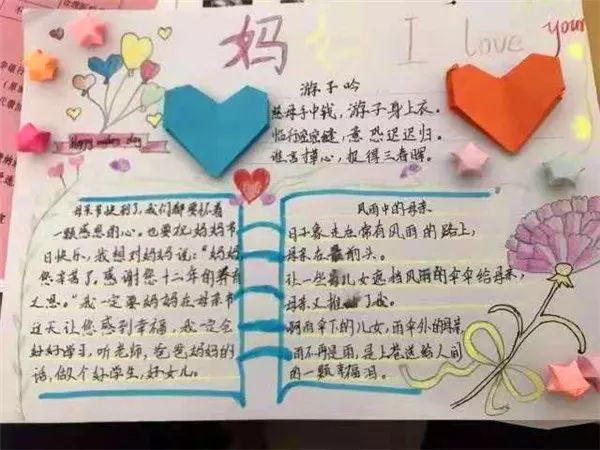 妈妈 I love you
游子吟
慈母手中线,游子身上衣。
临行密密缝,意恐迟迟归。
谁言 心,报得三春晖。
Happy mothers day
母亲节快到了,我们都要怀着
一颗感恩的心。也要祝妈妈节
日快乐,我想对妈妈说:“妈妈
您辛苦了。感谢您十二年的养育
之恩。”我一定要妈妈在母亲节
这天让您感到幸福,我一定会
好好学习,听老师,爸爸妈妈的
话,做个好学生,好女儿。
风雨中的母亲
日子象走在常有风雨的路上,
母亲在最前头。
让一些儿女遮挡风雨的伞伞给母亲,
母亲又推 了我。
啊雨伞下的儿女,雨伞外的母亲
雨不再是雨,是上苍送给人间
的一颗幸福泪。